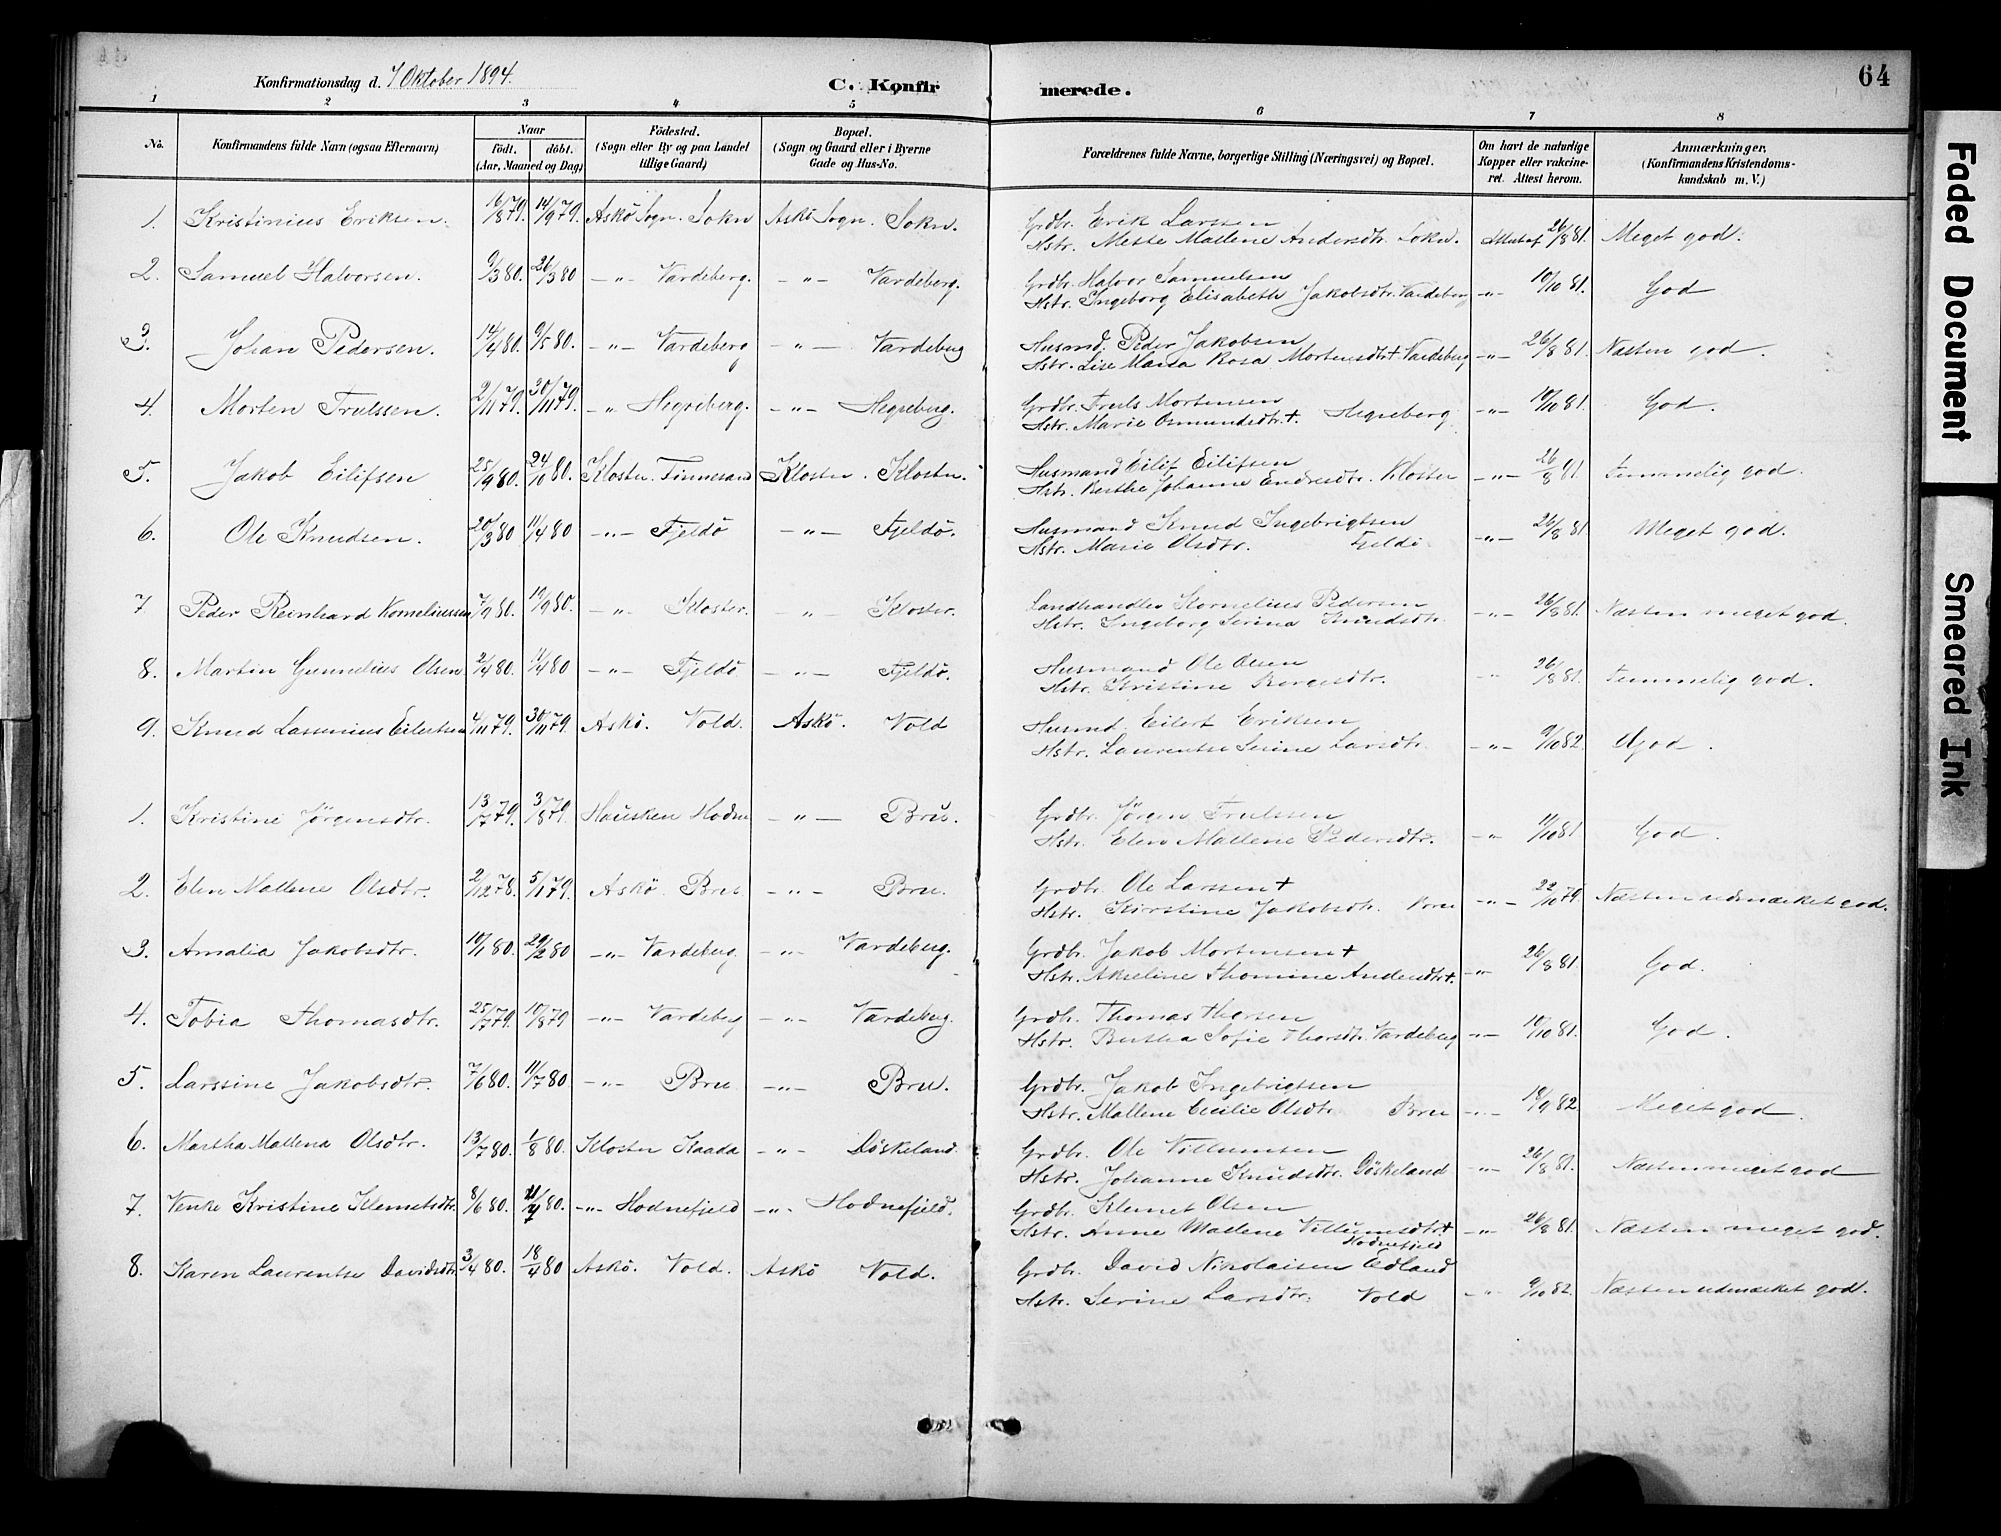 Konfirmationsdag d. 7 Oktober 1894.
C. Konfirmerede.
64
1 2 3 4 5 6 7 8
No. Konfirmandens fulde Navn (ogsaa Efternavn) Naar födt. döbt. (Aar, Maaned og Dag) Födested. (Sogn eller By og paa Landet tillige Gaard) Bopæl. (Sogn og Gaard eller i Byerne Gade og Hus-No. Forældrenes fulde Navne, borgerlige Stilling (Næringsvei) og Bopæl. Om havt de naturlige Kopper eller vakcineret. Attest herom. Anmærkninger, (Konfirmandens Kristendomskundskab m. V.)
1. Kristinius Eriksen. 16/8 79. 14/9 79. Askö Sogn. Sokn Askö Sogn. Sokn. Grdbr. Erik Larsen
Hstr. Mette Mallene Andersdtr. Sokn. Attest af 26/8 81. Meget god.
2. Samuel Halvorsen. 9/3 80. 26/3 80 -„- Vardeberg. -„- Vardeberg. Grdbr. Halvor Samuelsen
Hstr. Ingeborg Elisabeth Jakobsdtr. Vardeberg -„- 10/10 81. God
3. Johan Pedersen. 14/4 80. 9/5 80. -„- Vardeberg -„- Vardeberg Husmd. Peder Jakobsen
Hstr. Lise Maria Rosa Mortensdtr + Vardeberg -„- 26/8 81. Næsten god.
4. Morten Trulssen. 2/11 79. 30/11 79. -„- Hegreberg. -„- Hegreberg. Grdbr. Truls Mortensen
Hstr. Marie Osmundsdtr. +. Hegreberg -„- 10/10 81. God.
5. Jakob Eilifsen 25/9 80. 24/10 80. Kloster. Finnesand Kloster. Kloster. Husmand Eilif Eilifsen
Hstr. Berthe Johanne Endresdtr. Kloster -„- 26/8 81 Temmelig god.
6. Ole Knudsen. 20/3 80 11/4 80 -„- Fjeldö -„- Fjeldö. Husmand Knud Ingebrigtsen
Hstr. Marie Olsdtr. Fjeldö -„- 26/8 81 Meget god.
7 Peder Reinhard Korneliussen 7/9 80. 19/9 80. -„- Kloster. -„- Kloster. Landhandler Kornelius Pedersen
Hstr. Ingeborg Serina Knudsdtr. -„- 26/8 81. Næsten meget god.
8. Martin Gunnelius Olsen 2/4 80. 11/4 80 -„- Fjeldö -„- Fjeldö. Husmand Ole Olsen
Hstr. Kristine Borgesdtr. „ 26/8 81. Temmelig god.
9. Knud Lassenius Eilertsen 4/11 79. 30/11 79. Askö. Vold. Askö. Vold Husmd. Eilert Eriksen
Hstr. Laurentse Serine Larsdtr. -„- 9/10 82. God.
1. Kristine Jörgensdtr. 13/7 79. 3/8 79. Hausken Hodne -„- Bru. Grdbr. Jörgen Trulssen
Hstr. Elen Mallene Pedersdtr. -„ 11/10 81 God.
2. Elen Mallene Olsdtr. 2/12 78. 5/1 79. Askö Bru -„- Bru. Grdbr. Ole Larssen +
Hstr. Kirstine Jakobsdtr. Bru -„- 22/10 79. Næsten udmærket god.
3. Amalia Jakobsdtr. 10/1 80. 29/2 80 -„- Vardeberg. -„- Vardeberg. Grdbr. Jakob Mortensen +
Hstr. Akseline Thomine Andersdtr +. -„ 26/8 81. God.
4. Tobia Thomasdtr. 25/7 79. 10/8 79 -„- Vardeberg -„- Vardeberg. Grdbr. Thomas Thorsen
Hstr. Bertha Sofie Thorsdtr. Vardeberg -„- 10/10 81. God.
5. Larssine Jakobsdtr. 7/6 80. 11/7 80 -„- Bru -„- Bru. Grdbr. Jakob Ingebrigtsen
Hstr. Mallene Cecilie Olsdtr Bru -„- 18/9 82 Meget god.
6. Martha Mallena Olsdtr. 13/7 80. 1/8 80. Kloster Kaada -„- Döskeland. Grdbr. Ole Villumsen
Hstr. Johanne Knudsdtr. Döskeland -„ 26/8 81. Næsten meget god
7. Venke Kristine Klemetsdtr. 8/6 80. 11/7 80. -„- Hodnefjeld -„- Hodnefjeld. Grdbr. Klemet Olsen
Hstr. Anne Mallene Villumsdtr + Hodnefjeld -„ 26/8 81. Næsten meget god.
8. Karen Laurentse Davidsdtr. 3/4 80. 18/4 80 Askö. Vold. Askö Vold. Grdbr. David Nikolaisen Edland
Hstr. Serine Larsdtr. Vold -„ 9/10 82. Næsten udmærket god.
Faded Document
Smeared Ink